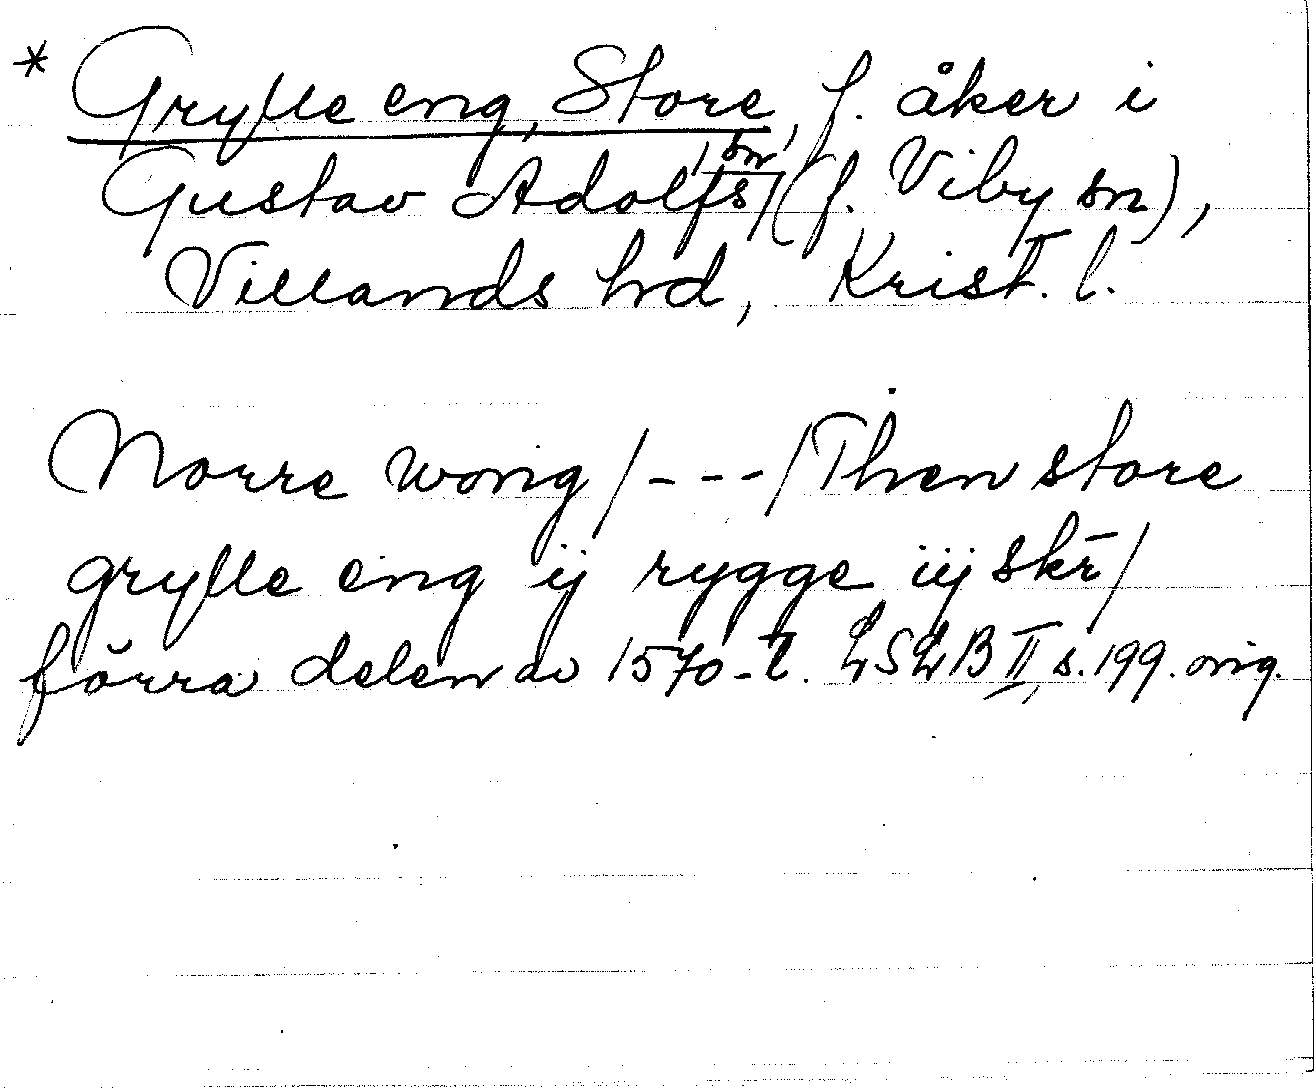 * Grylle eng, Store, f. åker i
Gustav Adolfs sn, (f. Viby sn),
Villands hd, Krist. l.
Norre wong /---/ Then store
grylle eng ij rygge iij skr̄/
förra delen av 1570-t. LSLB II, s. 199. orig.